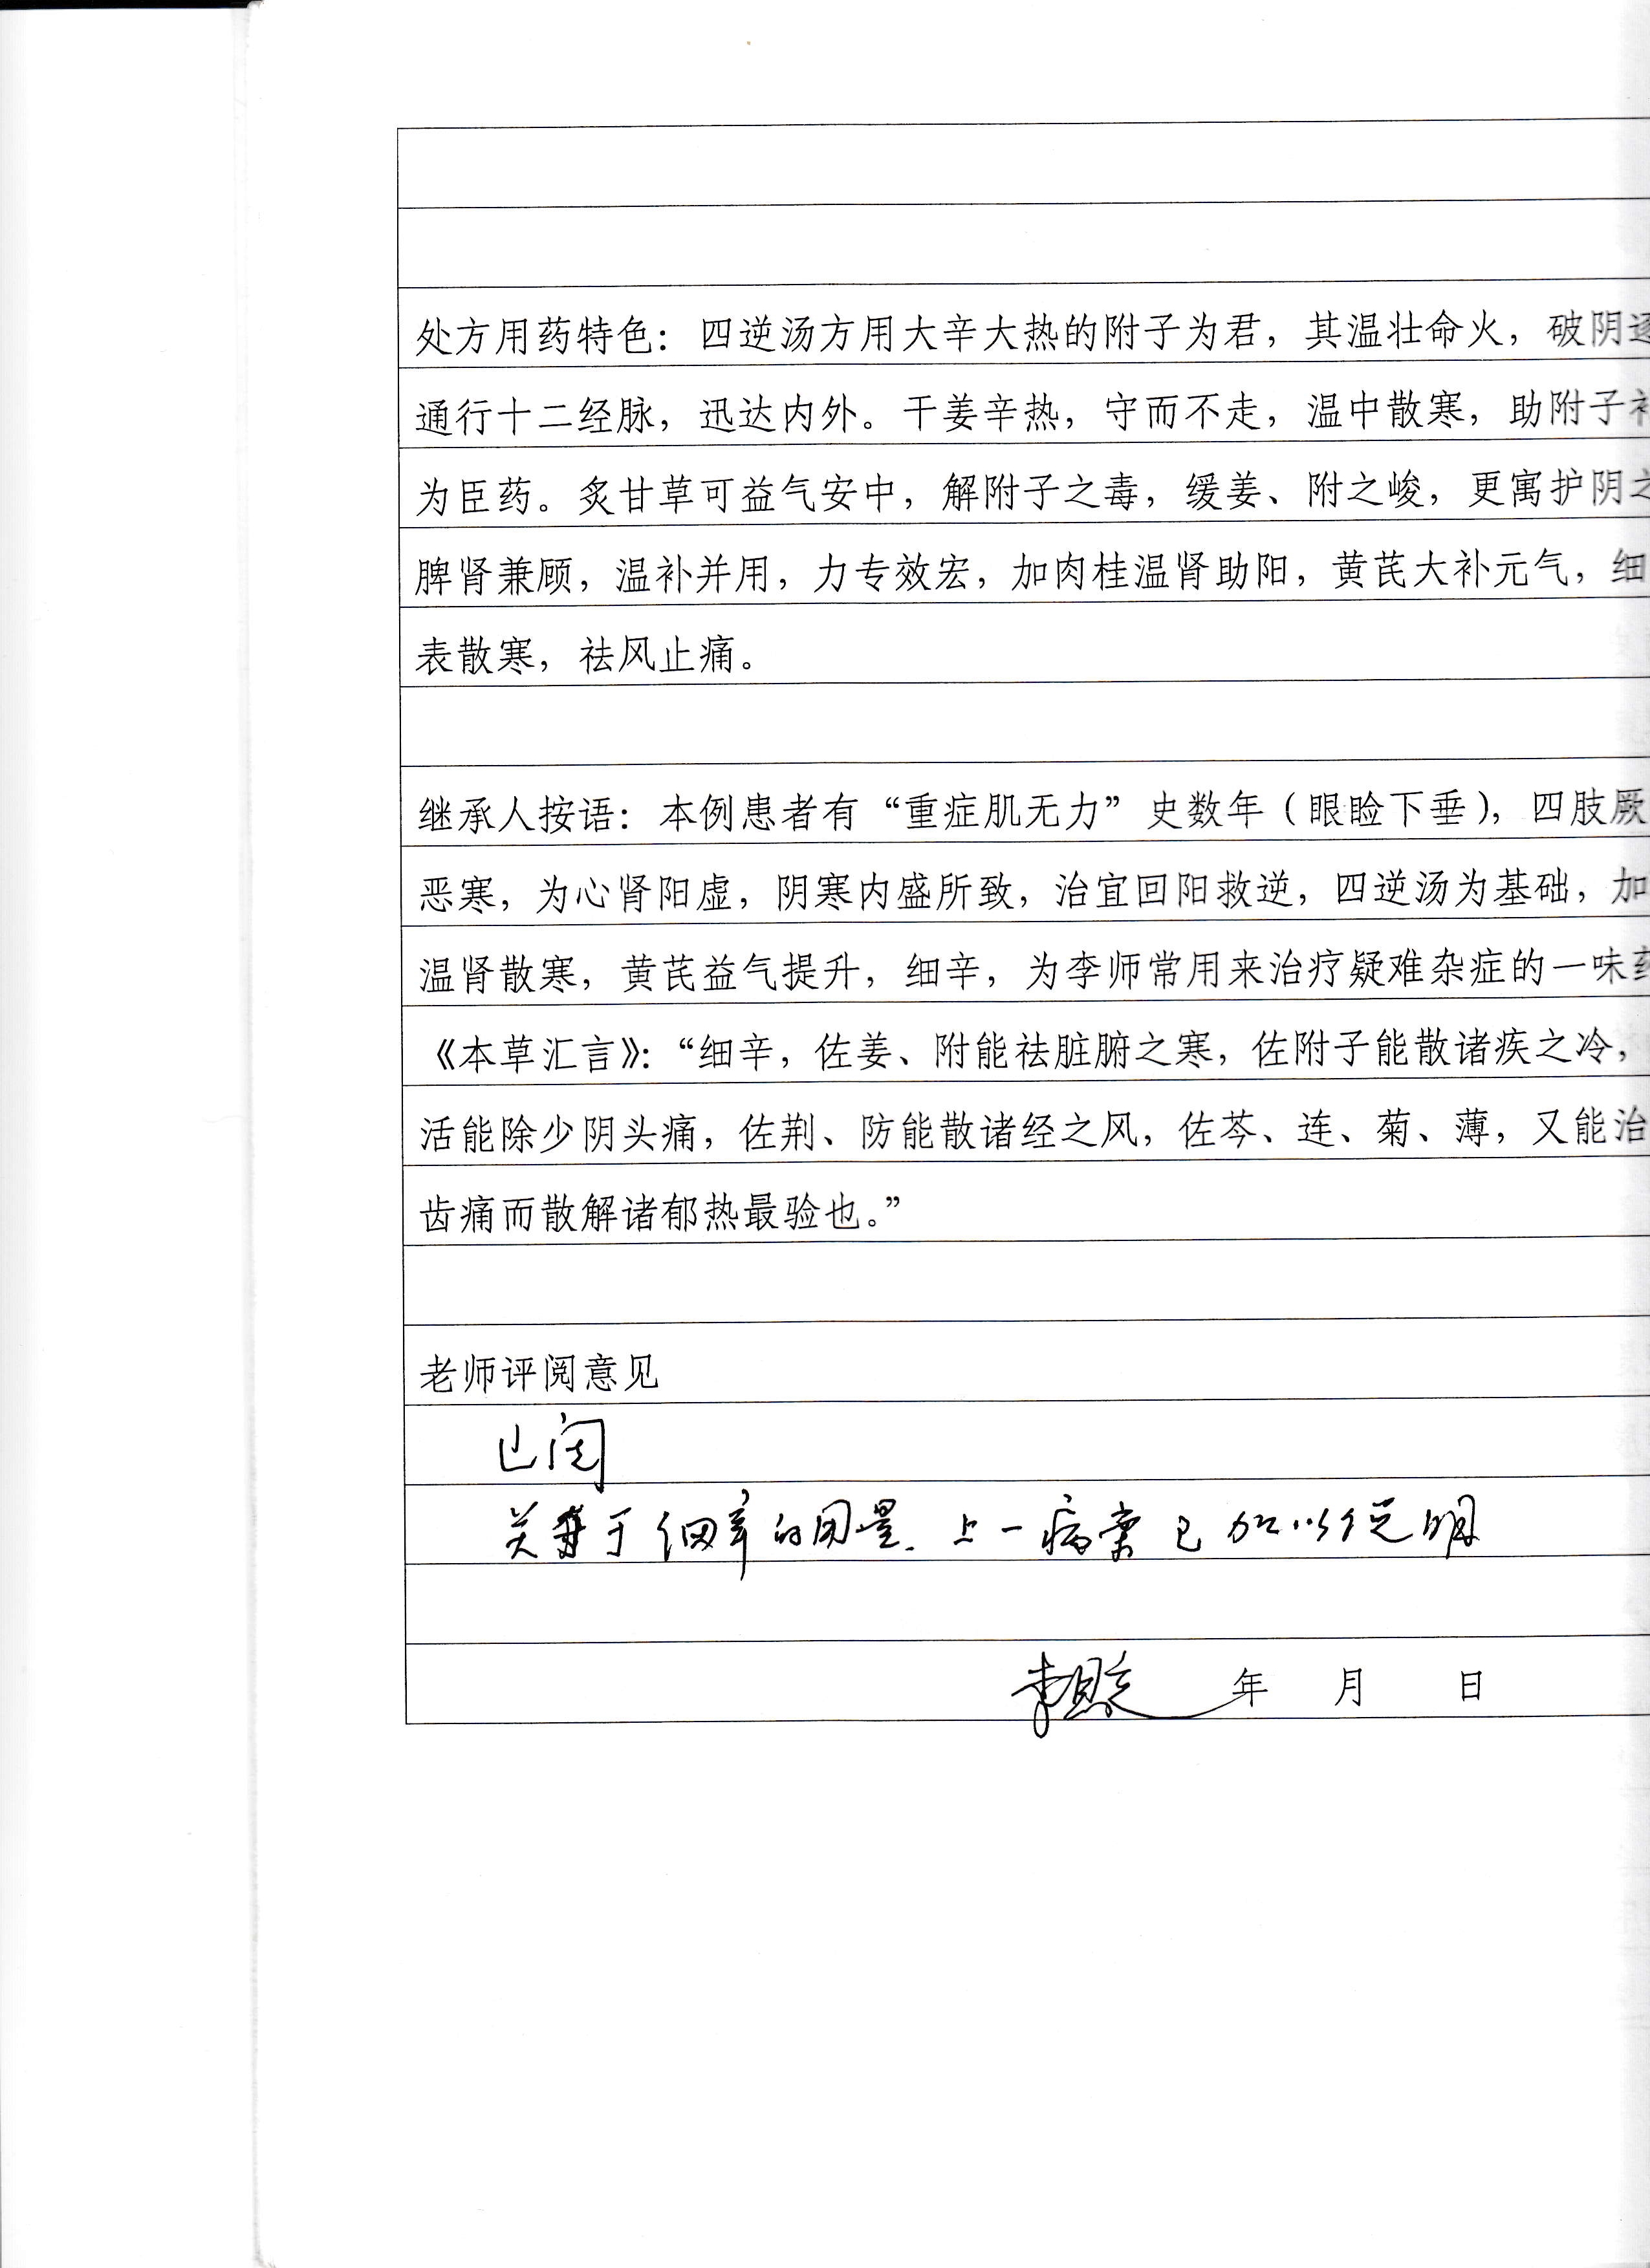 处方用药特色：四逆汤方用大辛大热的附子为君，其温壮命火，破阴逐
通行十二经脉，迅达内外。干姜辛热，守而不走，温中散寒，助附子
为臣药。炙甘草可益气安中，解附子之毒，缓姜、附之峻，更寓护阴之
脾肾兼顾，温补并用，力专效宏，加肉桂温肾助阳，黄芪大补元气，细
表散寒，祛风止痛。
继承人按语：本例患者有“重症肌无力”史数年（眼睑下垂），四肢厥
恶寒，为心肾阳虚，阴寒内盛所致，治宜回阳救逆，四逆汤为基础，加
温肾散寒，黄芪益气提升，细辛，为李师常用来治疗疑难杂症的一味药
《本草汇言》：“细辛，佐姜、附能祛脏腑之寒，佐附子能散诸疾之冷，
活能除少阴头痛，佐荆、防能散诸经之风，佐芩、连、菊、薄，又能治
齿痛而散解诸郁热最验也。”
老师评阅意见
已阅
关于细辛的用量．上一病案已加以说明
李 年 月 日